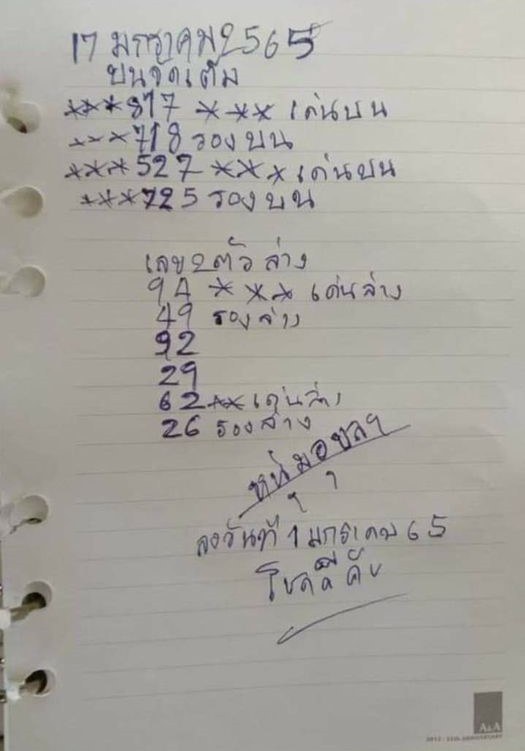 17 มกราคม 2565
บนจัดเต็ม
***817 *** เด่นบน
***718 รองบน
***527 *** เด่นบน
***725 รองบน
เลข 2 ตัวล่าง
94 *** เด่นล่าง
49 รองล่าง
92
29
62** เด่นล่าง
26 รองล่าง
ลงวันที่ 1 มกราคม 65
โชคดีคับ
A&A